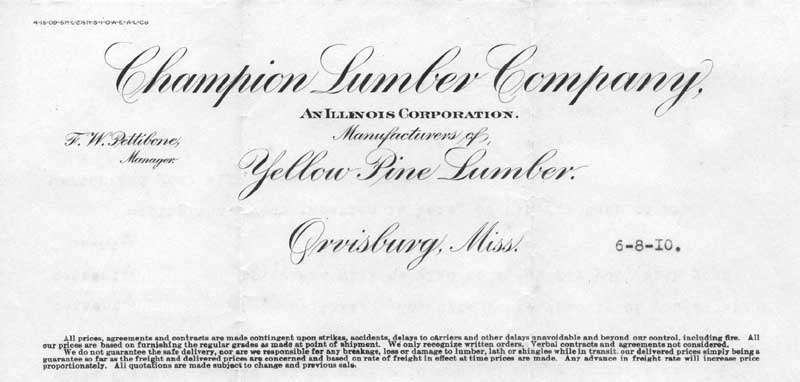 Champion Lumber Company,
AN ILLINOIS CORPORATION.
F. W. Pettibone,
Manager.
Manufacturers of
Yellow Pine Lumber.
Orvisburg, Miss.
6-8-10.
All prices, agreements and contracts are made contingent upon strikes, accidents, delays to carriers and other delays unavoidable and beyond our control, including fire. All
our prices are based on furnishing the regular grades as made at point of shipment. We only recognize written orders. Verbal contracts and agreements not considered.
We do not guarantee the safe delivery, nor are we responsible for any breakage, loss or damage to lumber, lath or shingles while in transit, our delivered prices simply being a
guarantee so far as the freight and delivered prices are concerned and based on rate of freight in effect at time prices are made. Any advance in freight rate will increase price
proportionately. All quotations are made subject to change and previous sale.